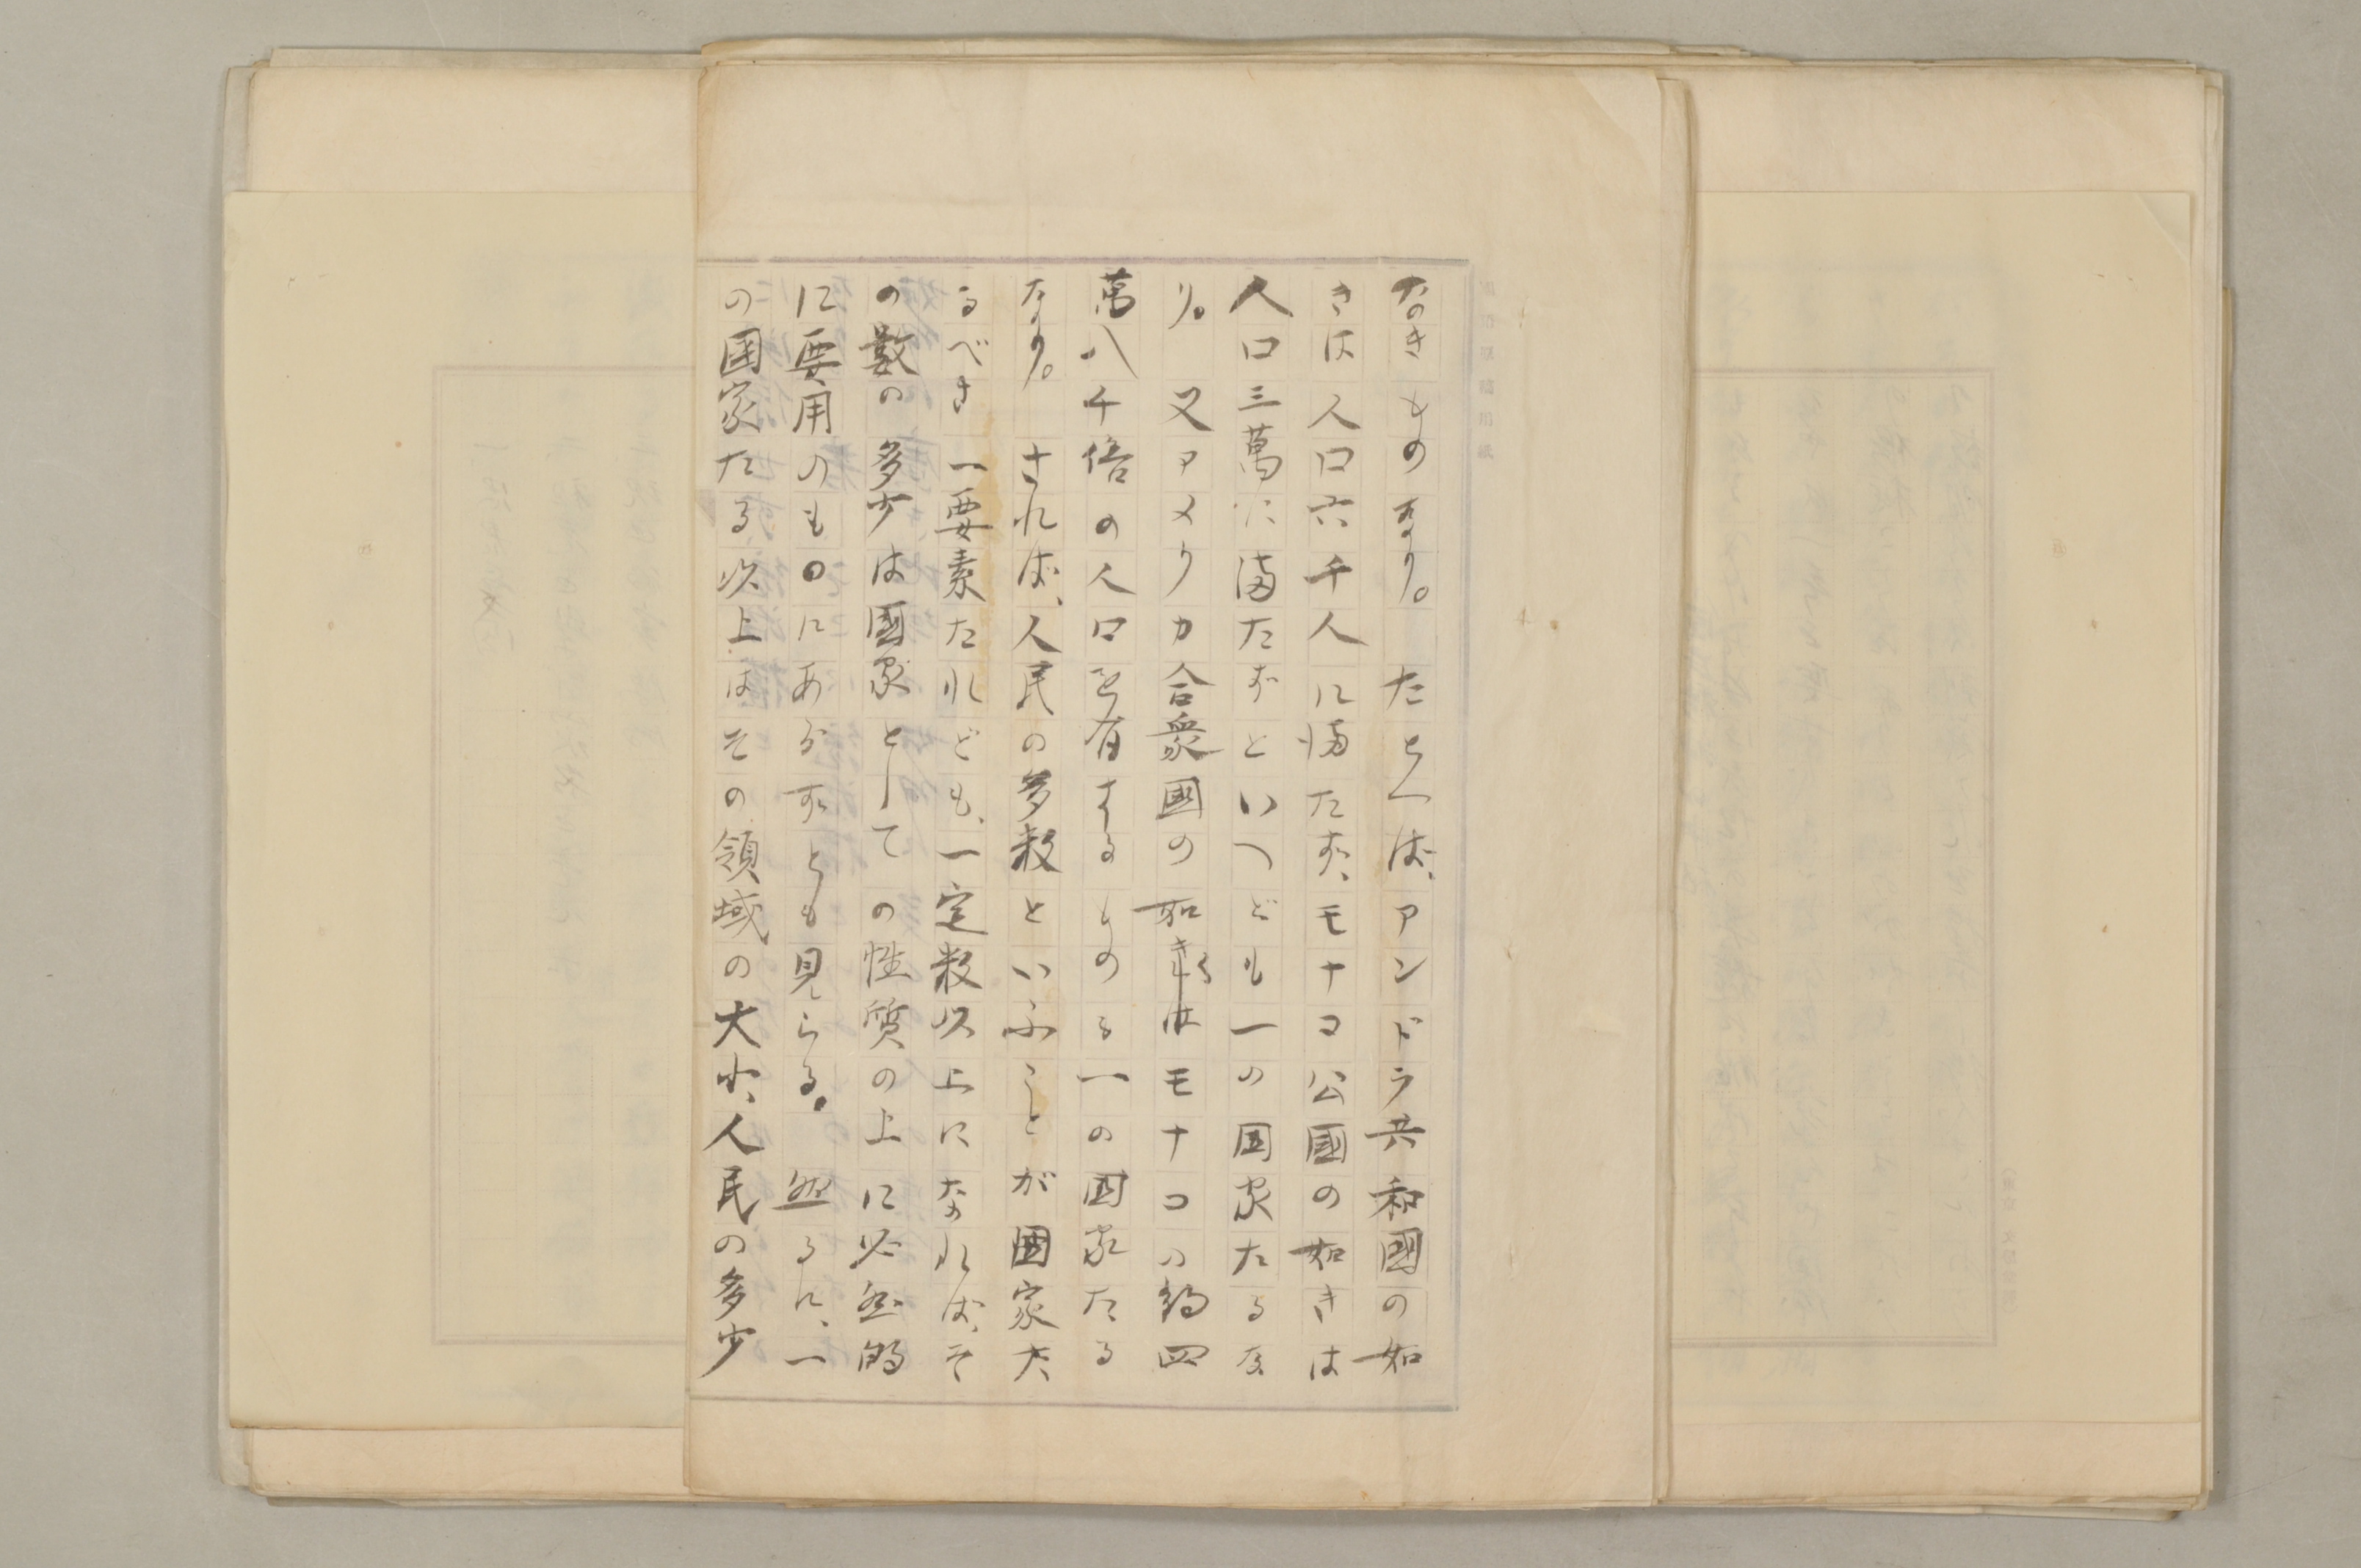 なきものなり。　たとへば、アンドラ共和國の如
きは人口六千人に満たず、モナコ公國の如きは
人口三萬に満たずといへども一の国家たるな
り。　又アメリカ合衆國の如きはモナコの約四
萬八千倍の人口を有するものも一の国家たる
なり。　されば、人民の多数といふことが国家た
るべき一要素たれども、一定数以上になれば、そ
の數の多少は國家としての性質の上に必然的
に要用のものにあらずとも見らる。　然るに、一
の国家たる以上はその領域の大小、人民の多少